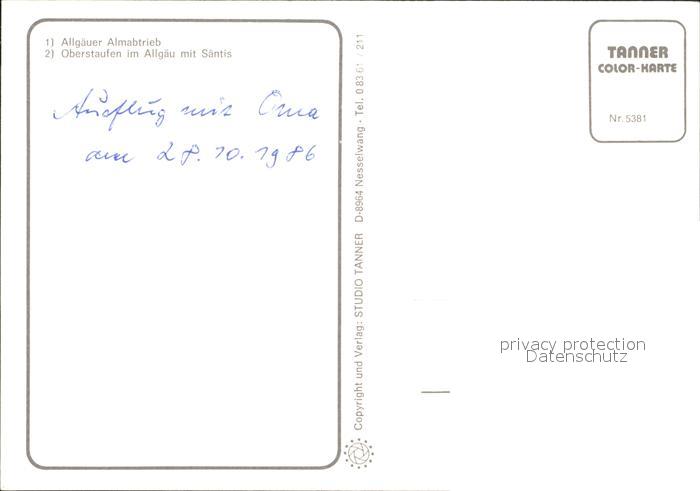 1) Allgäuer Almabtrieb
2) Oberstaufen im Allgäu mit Säntis
Ausflug mit Oma
am 28. 10. 1986
Copyright und Verlag: STUDIO TANNER D-8964 Nesselwang - Tel. 0 83 61 / 211
TANNER
COLOR-KARTE
Nr. 5381
privacy protection
Datenschutz